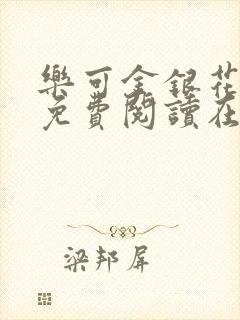 樂可金銀花
免費閱讀在
梁邦屏